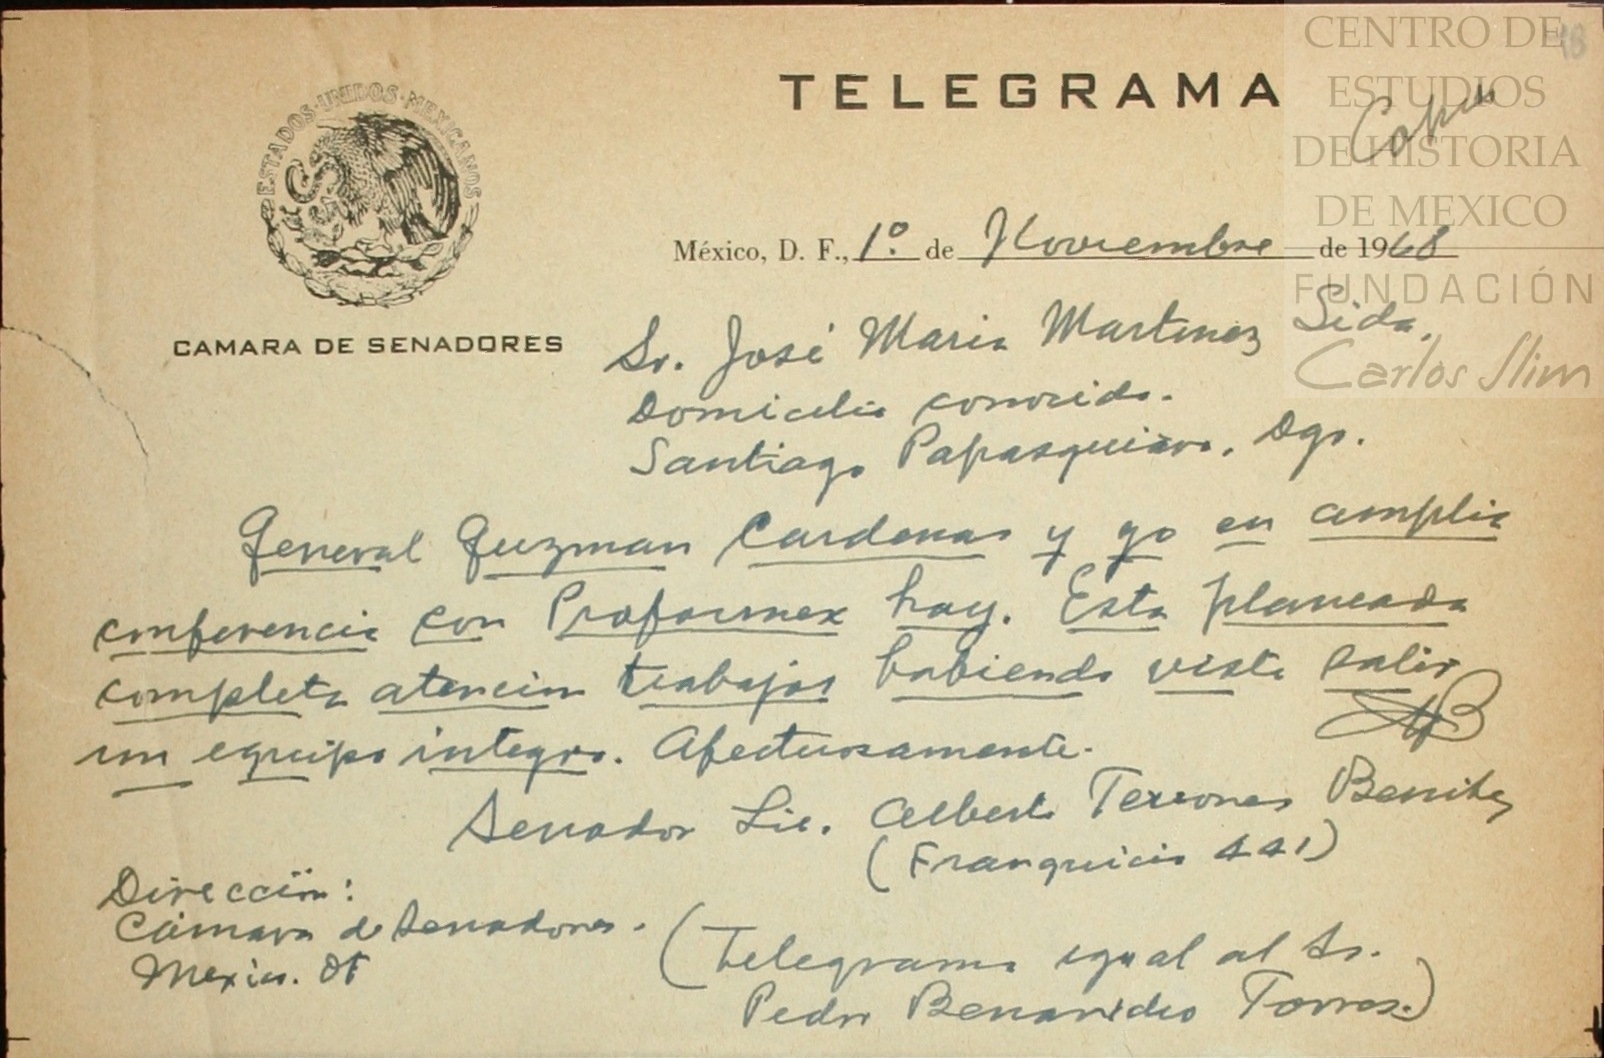 CENTRO DE
ESTUDIOS
DE HISTORIA
DE MEXICO
FUNDACIÓN
Carlos Slim
TELEGRAMA
Copia
ESTADOS·UNIDOS·MEXICANOS
CAMARA DE SENADORES
México, D. F., 1º. de Noviembre de 1968
Sr. José Maria Martinez Sida.
Domicilio conocido.
Santiago Papasquiaro, Dgo.
General Guzman Cardenas y yo en amplia
conferencia con Proformex hoy. Esta planeada
completa atencion trabajos habiendo visto salir
un equipo integro. Afectuosamente.
Senador Lic. Alberto Terrones Benitez
(Franquicia 441)
Dirección:
Cámara de Senadores.
Mexico. DF
(Telegrama igual al Sr.
Pedro Benavides Torres.)